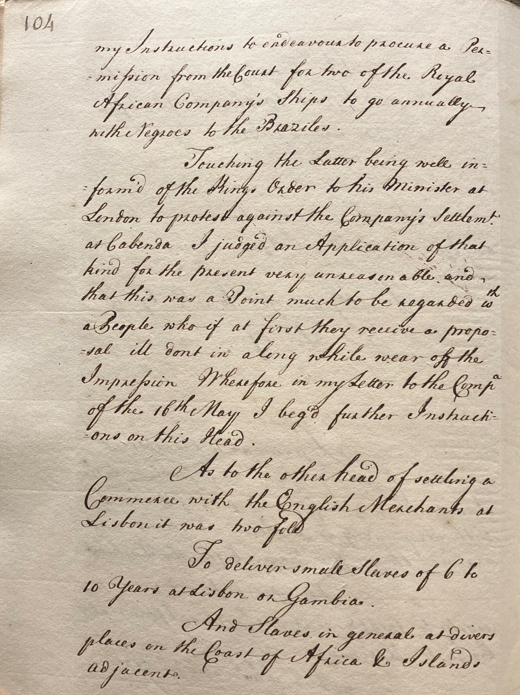 104
my Instructions to endeavour to procure a Per-
-mission from the Court for two of the Royal
African Company's Ships to go annually
with Negroes to the Braziles.
Touching the Latter being well in-
-form'd of the Kings Order to his Minister at
London to protest against the Company's Settlemt.
at Cabenda I judged an Application of that
kind for the present very unreasonable and,
that this was a Point much to be regarded wth
a People who if at first they receive a propo-
-sal ill dont in a long while wear off the
Impression Wherefore in my Letter to the Compa
of the 16th May I beg'd further Instructi-
-ons on this Head.
As to the other head of settling a
Commerce with the English Merchants at
Lisbon it was two fold
To deliver small Slaves of 6 to
10 Years at Lisbon or Gambia.
And Slaves in general at divers
places on the Coast of Africa & Islands
adjacent.